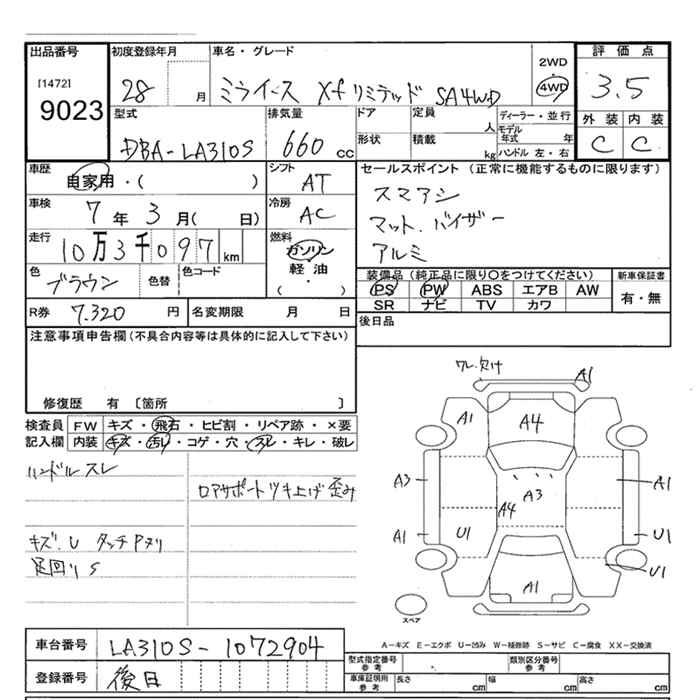 出品番号 初度登録年月 車名・グレード 評価点
[1472] 9023 28 月 ミライース Xf リミテッド SA4WD 2WD 4WD 3.5
型式 排気量 ドア 定員 人 ディーラー・並行 外装 内装
DBA-LA310S 660 cc 形状 積載 kg モデル年式 年 ハンドル 左・右 C C
車歴 自家用・( ) シフト AT セールスポイント (正常に機能するものに限ります)
車検 7年 3月( 日) 冷房 AC スマアシ
マット.バイザー
走行 10万3千097 km 燃料 ガソリン 軽油 ( ・ ) アルミ
色 ブラウン 色替 色コード 装備品 (純正品に限り〇をつけてください) 新車保証書
PS PW ABS エアB AW 有・無
SR ナビ TV カワ
R券 7.320 円 名変期限 月 日 後日品
注意事項申告欄(不具合内容等は具体的に記入して下さい)
修復歴 有 〔箇所 〕
検査員 FW キズ・飛石・ヒビ割・リペア跡・×要
記入欄 内装 キズ・汚レ・コゲ・穴・スレ・キレ・破レ
ハンドル スレ
ロアサポート ツキ上げ 歪み
キズ.U タッチPヌリ
足回り S
ワレ.欠け A1
A1 A4
A3 A3 A1
A4
A1 U1 U1
U1
A1
スペア
A-キズ E-エクボ U-凹み W-補修跡 S-サビ C-腐食 XX-交換済
車台番号 LA310S-1072904
登録番号 後日
型式指定番号 参考 類別区分番号 参考
車庫証明用 参考 長さ cm 幅 cm 高さ cm